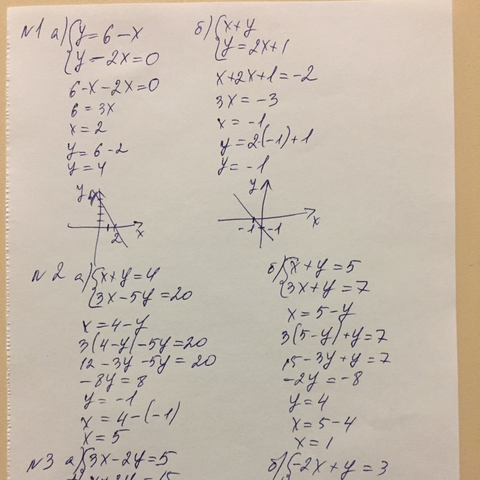 №1 а) {y = 6 - x
{y - 2x = 0
6 - x - 2x = 0
6 = 3x
x = 2
y = 6 - 2
y = 4
y
x
2
б) {x + y
{y = 2x + 1
x + 2x + 1 = -2
3x = -3
x = -1
y = 2·(-1) + 1
y = -1
y
x
-1
-1
№2 а) {x + y = 4
{3x - 5y = 20
x = 4 - y
3(4 - y) - 5y = 20
12 - 3y - 5y = 20
-8y = 8
y = -1
x = 4 - (-1)
x = 5
б) {x + y = 5
{3x + y = 7
x = 5 - y
3(5 - y) + y = 7
15 - 3y + y = 7
-2y = -8
y = 4
x = 5 - 4
x = 1
№3 а) {3x - 2y = 5
б) {-2x + y = 3